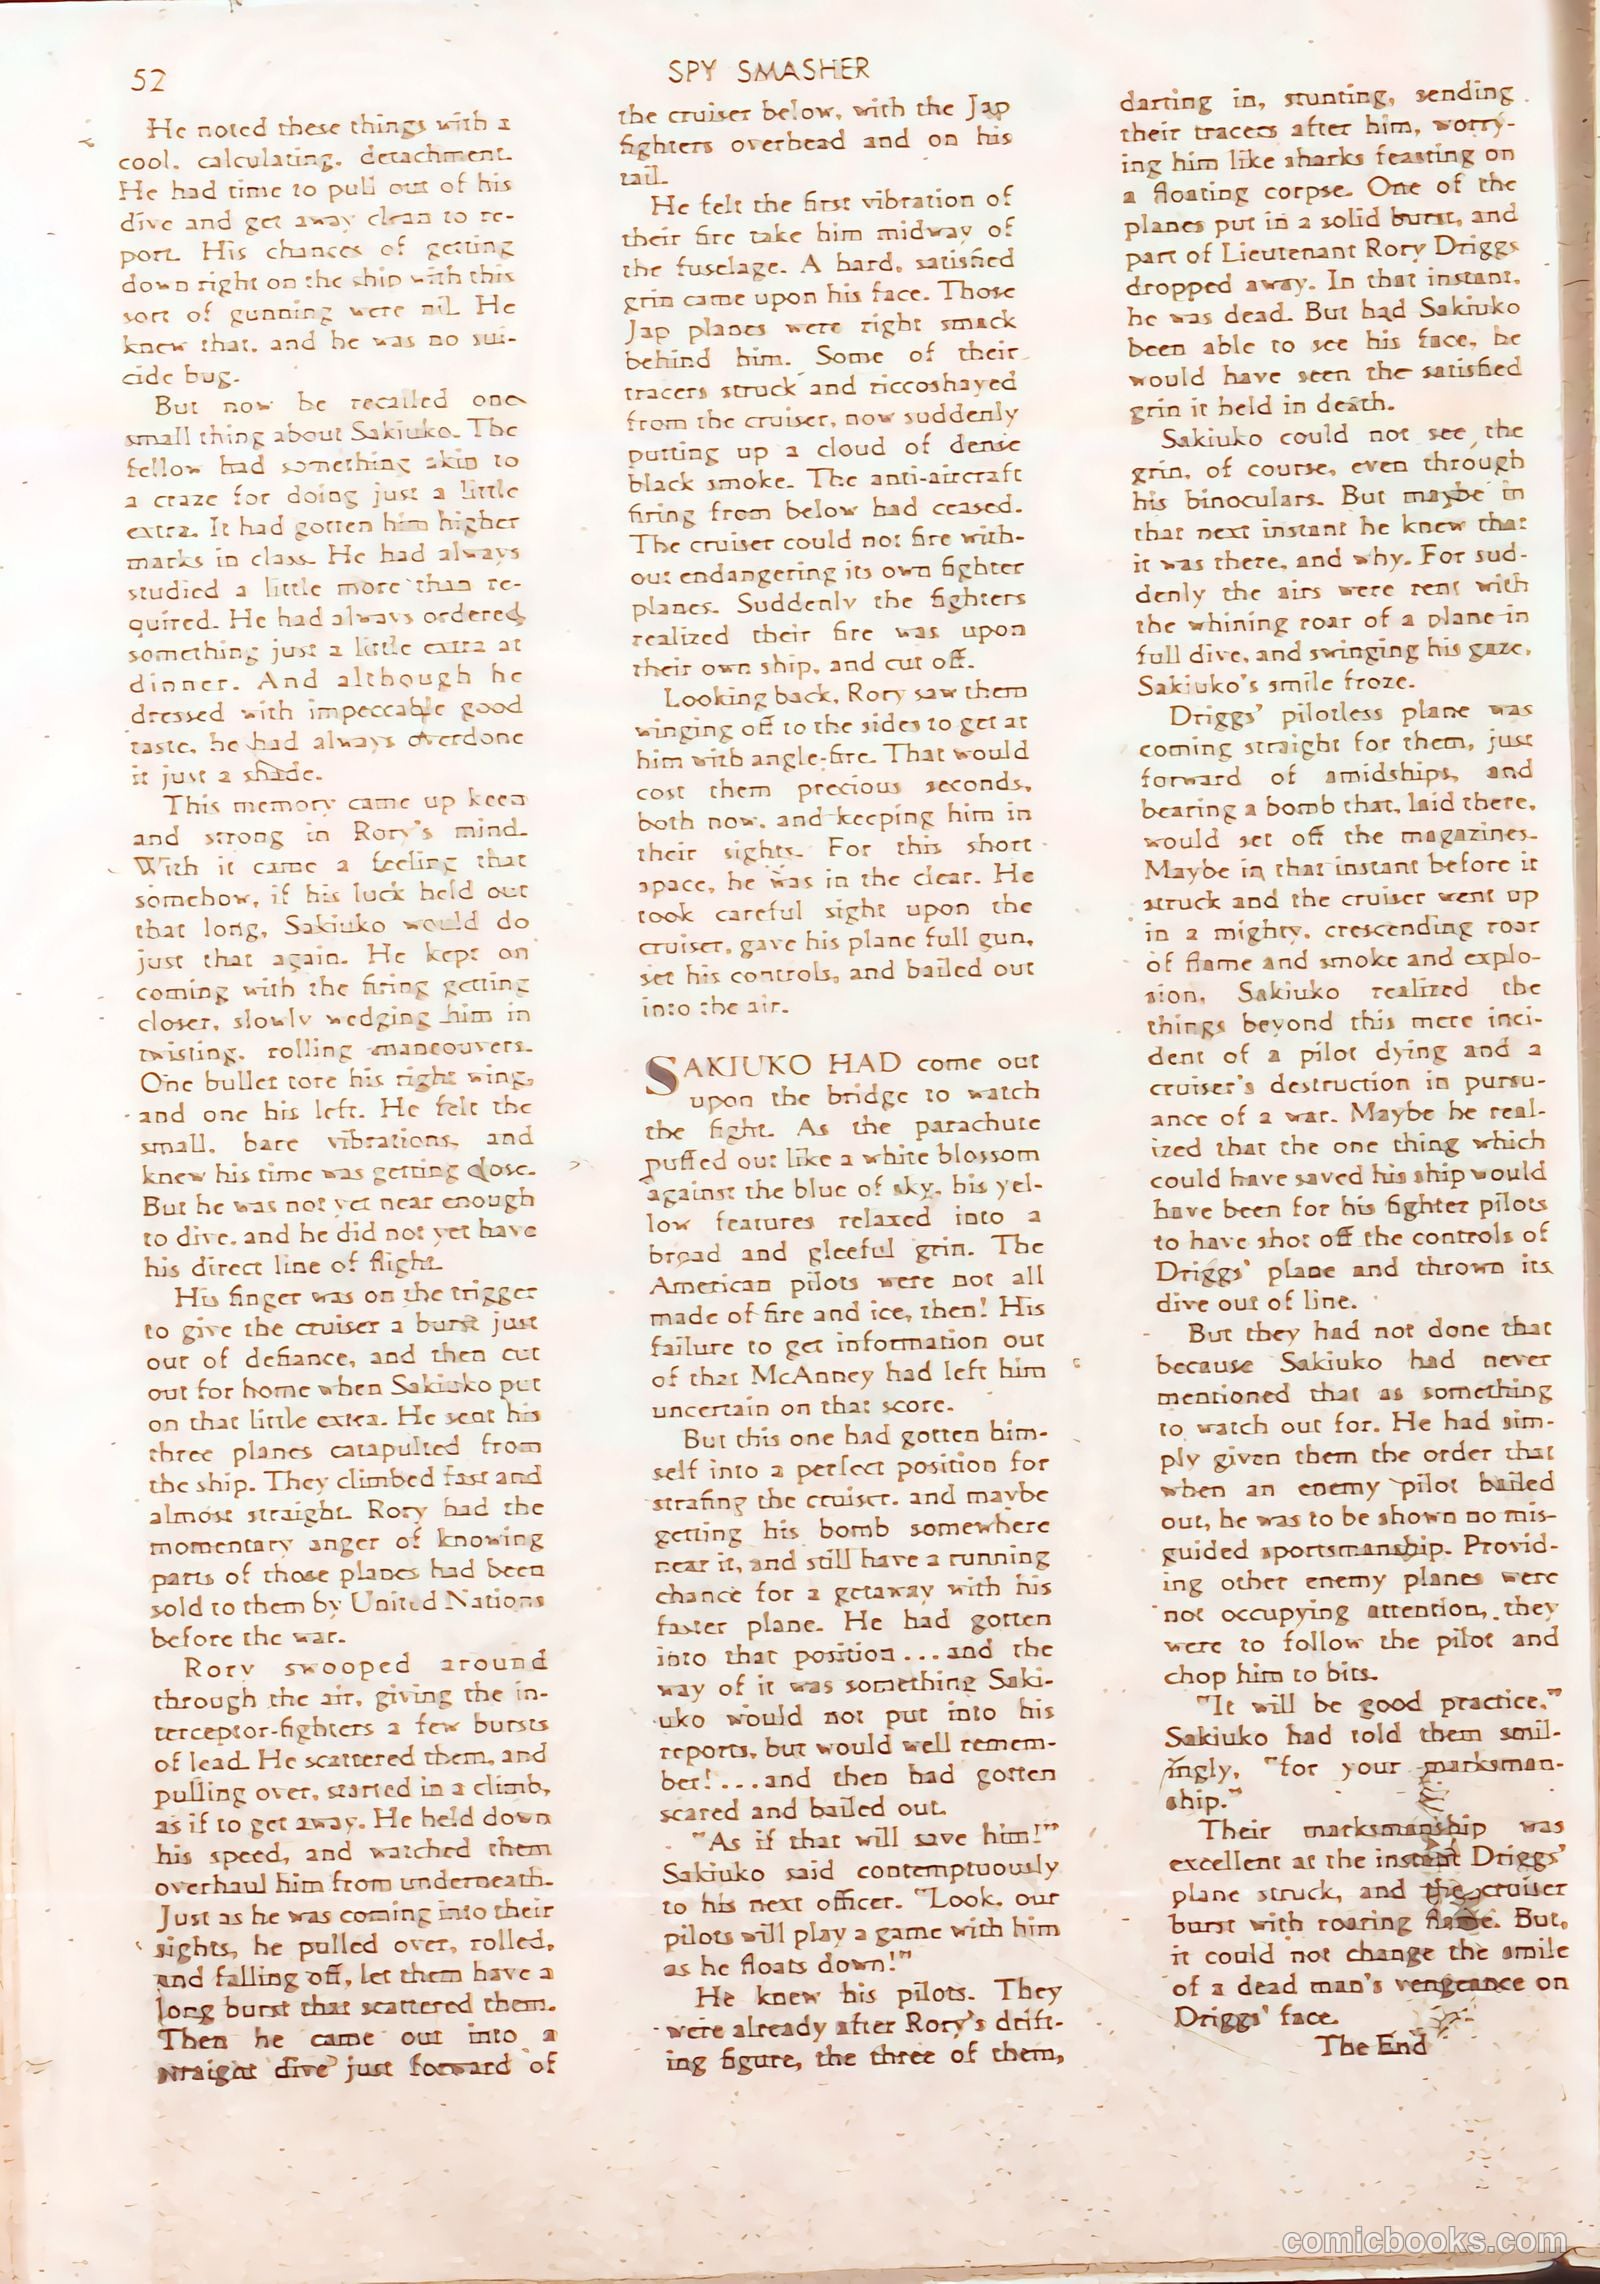 52
SPY SMASHER
He noted these things with a
cool, calculating, detachment.
He had time to pull out of his
dive and get away clean to re-
port. His chances of getting
down right on the ship with this
sort of gunning were nil. He
knew that, and he was no sui-
cide bug.
But now he recalled one
small thing about Sakiuko. The
fellow had something akin to
a craze for doing just a little
extra. It had gotten him higher
marks in class. He had always
studied a little more than re-
quired. He had always ordered
something just a little extra at
dinner. And although he
dressed with impeccable good
taste, he had always overdone
it just a shade.
This memory came up keen
and strong in Rory's mind.
With it came a feeling that
somehow, if his luck held out
that long, Sakiuko would do
just that again. He kept on
coming with the firing getting
closer, slowly wedging him in
twisting, rolling maneouvers.
One bullet tore his right wing,
and one his left. He felt the
small, bare vibrations, and
knew his time was getting close.
But he was not yet near enough
to dive, and he did not yet have
his direct line of flight.
His finger was on the trigger
to give the cruiser a burst just
out of defiance, and then cut
out for home when Sakiuko put
on that little extra. He sent his
three planes catapulted from
the ship. They climbed fast and
almost straight. Rory had the
momentary anger of knowing
parts of those planes had been
sold to them by United Nations
before the war.
Rory swooped around
through the air, giving the in-
terceptor-fighters a few bursts
of lead. He scattered them, and
pulling over, started in a climb,
as if to get away. He held down
his speed, and watched them
overhaul him from underneath.
Just as he was coming into their
sights, he pulled over, rolled,
and falling off, let them have a
long burst that scattered them.
Then he came out into a
straight dive just forward of
the cruiser below, with the Jap
fighters overhead and on his
tail.
He felt the first vibration of
their fire take him midway of
the fuselage. A hard, satisfied
grin came upon his face. Those
Jap planes were right smack
behind him. Some of their
tracers struck and riccoshayed
from the cruiser, now suddenly
putting up a cloud of dense
black smoke. The anti-aircraft
firing from below had ceased.
The cruiser could not fire with-
out endangering its own fighter
planes. Suddenly the fighters
realized their fire was upon
their own ship, and cut off.
Looking back, Rory saw them
winging off to the sides to get at
him with angle-fire. That would
cost them precious seconds,
both now, and keeping him in
their sights. For this short
space, he was in the clear. He
took careful sight upon the
cruiser, gave his plane full gun,
set his controls, and bailed out
into the air.
SAKIUKO HAD come out
upon the bridge to watch
the fight. As the parachute
puffed out like a white blossom
against the blue of sky, his yel-
low features relaxed into a
broad and gleeful grin. The
American pilots were not all
made of fire and ice, then! His
failure to get information out
of that McAnney had left him
uncertain on that score.
But this one had gotten him-
self into a perfect position for
strafing the cruiser, and maybe
getting his bomb somewhere
near it, and still have a running
chance for a getaway with his
faster plane. He had gotten
into that position...and the
way of it was something Saki-
uko would not put into his
reports, but would well remem-
ber!...and then had gotten
scared and bailed out.
"As if that will save him!"
Sakiuko said contemptuously
to his next officer. "Look, our
pilots will play a game with him
as he floats down!"
He knew his pilots. They
were already after Rory's drift-
ing figure, the three of them,
darting in, stunting, sending
their tracers after him, worry-
ing him like sharks feasting on
a floating corpse. One of the
planes put in a solid burst, and
part of Lieutenant Rory Driggs
dropped away. In that instant,
he was dead. But had Sakiuko
been able to see his face, he
would have seen the satisfied
grin it held in death.
Sakiuko could not see the
grin, of course, even through
his binoculars. But maybe in
that next instant he knew that
it was there, and why. For sud-
denly the airs were rent with
the whining roar of a plane in
full dive, and swinging his gaze,
Sakiuko's smile froze.
Driggs' pilotless plane was
coming straight for them, just
forward of amidships, and
bearing a bomb that, laid there,
would set off the magazines.
Maybe in that instant before it
struck and the cruiser went up
in a mighty, crescending roar
of flame and smoke and explo-
sion, Sakiuko realized the
things beyond this mere inci-
dent of a pilot dying and a
cruiser's destruction in pursu-
ance of a war. Maybe he real-
ized that the one thing which
could have saved his ship would
have been for his fighter pilots
to have shot off the controls of
Driggs' plane and thrown its
dive out of line.
But they had not done that
because Sakiuko had never
mentioned that as something
to watch out for. He had sim-
ply given them the order that
when an enemy pilot bailed
out, he was to be shown no mis-
guided sportsmanship. Provid-
ing other enemy planes were
not occupying attention, they
were to follow the pilot and
chop him to bits.
"It will be good practice,"
Sakiuko had told them smil-
ingly, "for your marksman-
ship."
Their marksmanship was
excellent at the instant Driggs'
plane struck, and the cruiser
burst with roaring flame. But,
it could not change the smile
of a dead man's vengeance on
Driggs' face.
The End
comicbooks.com